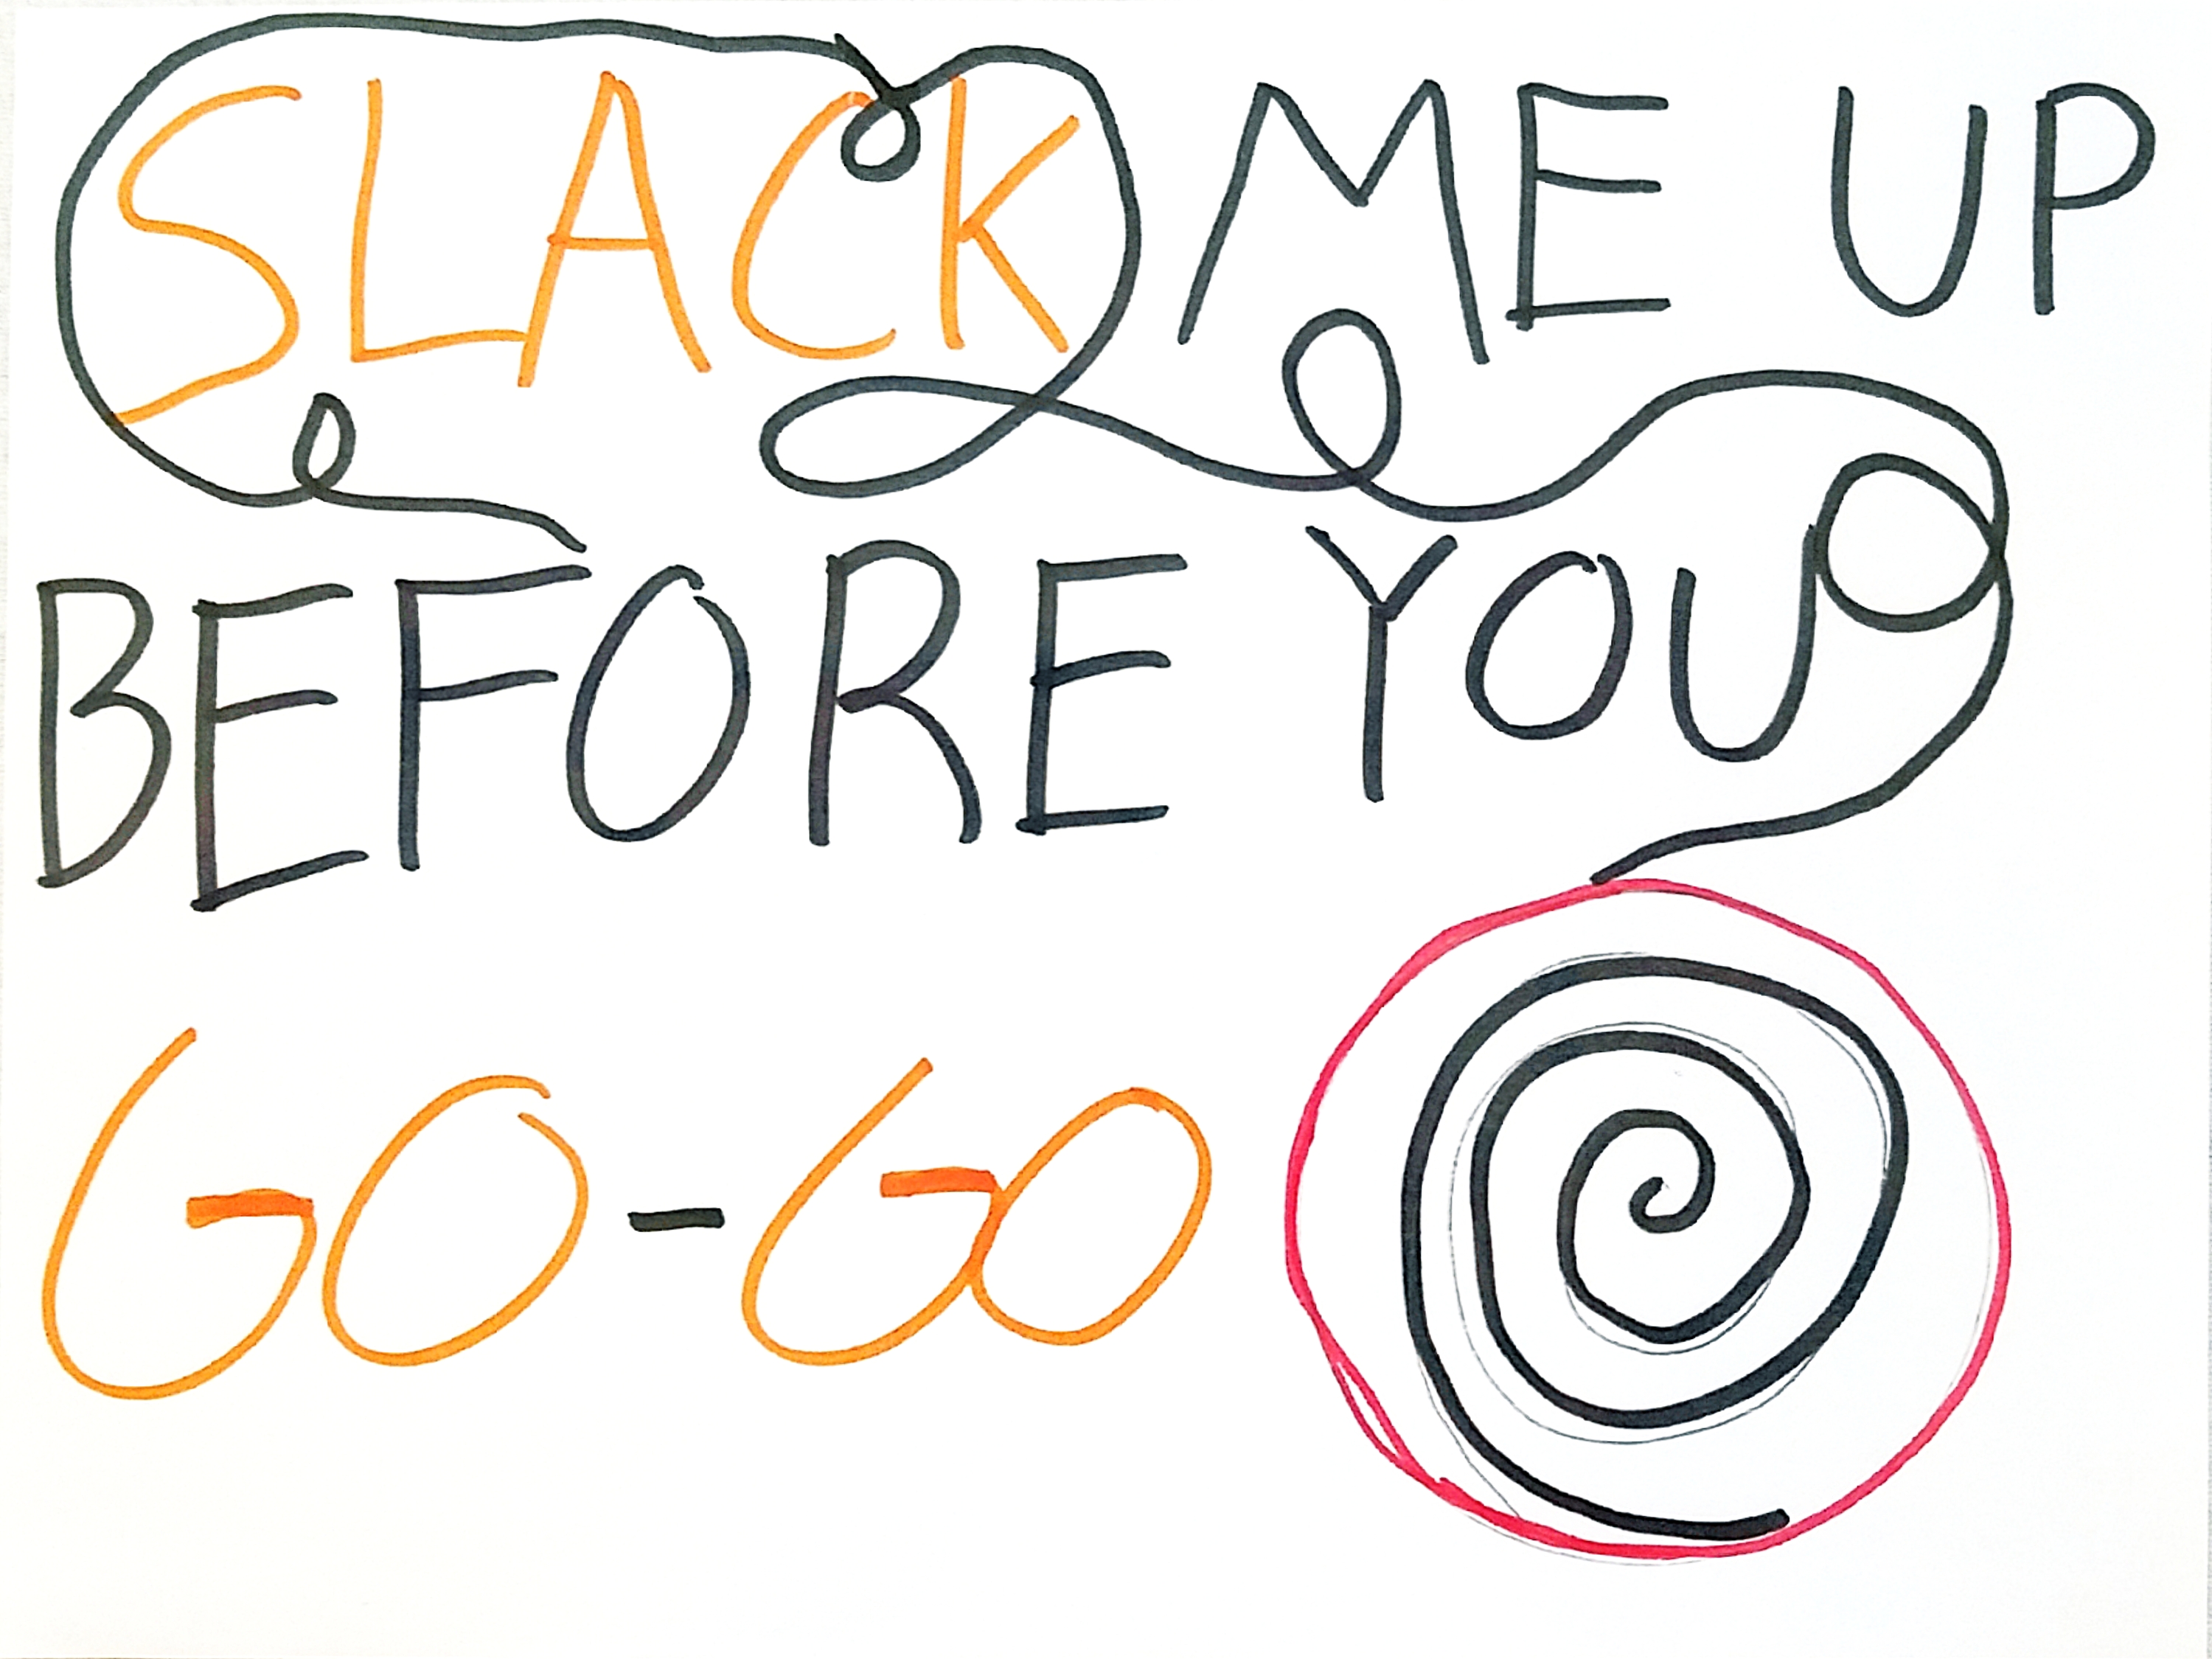 SLACK ME UP
BEFORE YOU
GO-GO